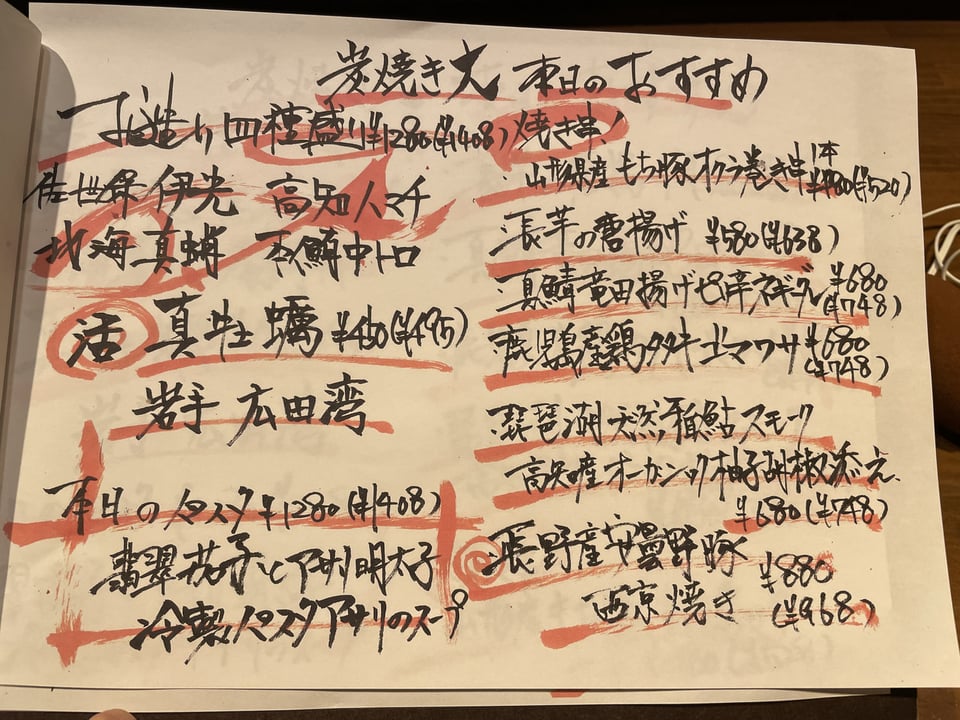 炭焼き大 本日のおすすめ
お造り四種盛り ¥1280(¥1408)
佐世保 伊光 高知 ハマチ
北海 真蛸 本鮪中トロ
活 真牡蠣 ¥450(¥495)
岩手 広田湾
本日のパスタ ¥1280(¥1408)
翡翠茄子とアサリ明太子
冷製パスタアサリのスープ
焼き串!
山形県産もち豚オクラ巻き串 1本 ¥480(¥520)
長芋の唐揚げ ¥580(¥638)
真鯖竜田揚げピ辛ネギソース ¥680(¥748)
鹿児島産鶏タタキゴマワサ ¥680(¥748)
琵琶湖天然稚鮎スモーク
高知産オーガニック柚子胡椒添え
¥680(¥748)
長野産安曇野豚
西京焼き ¥880(¥968)